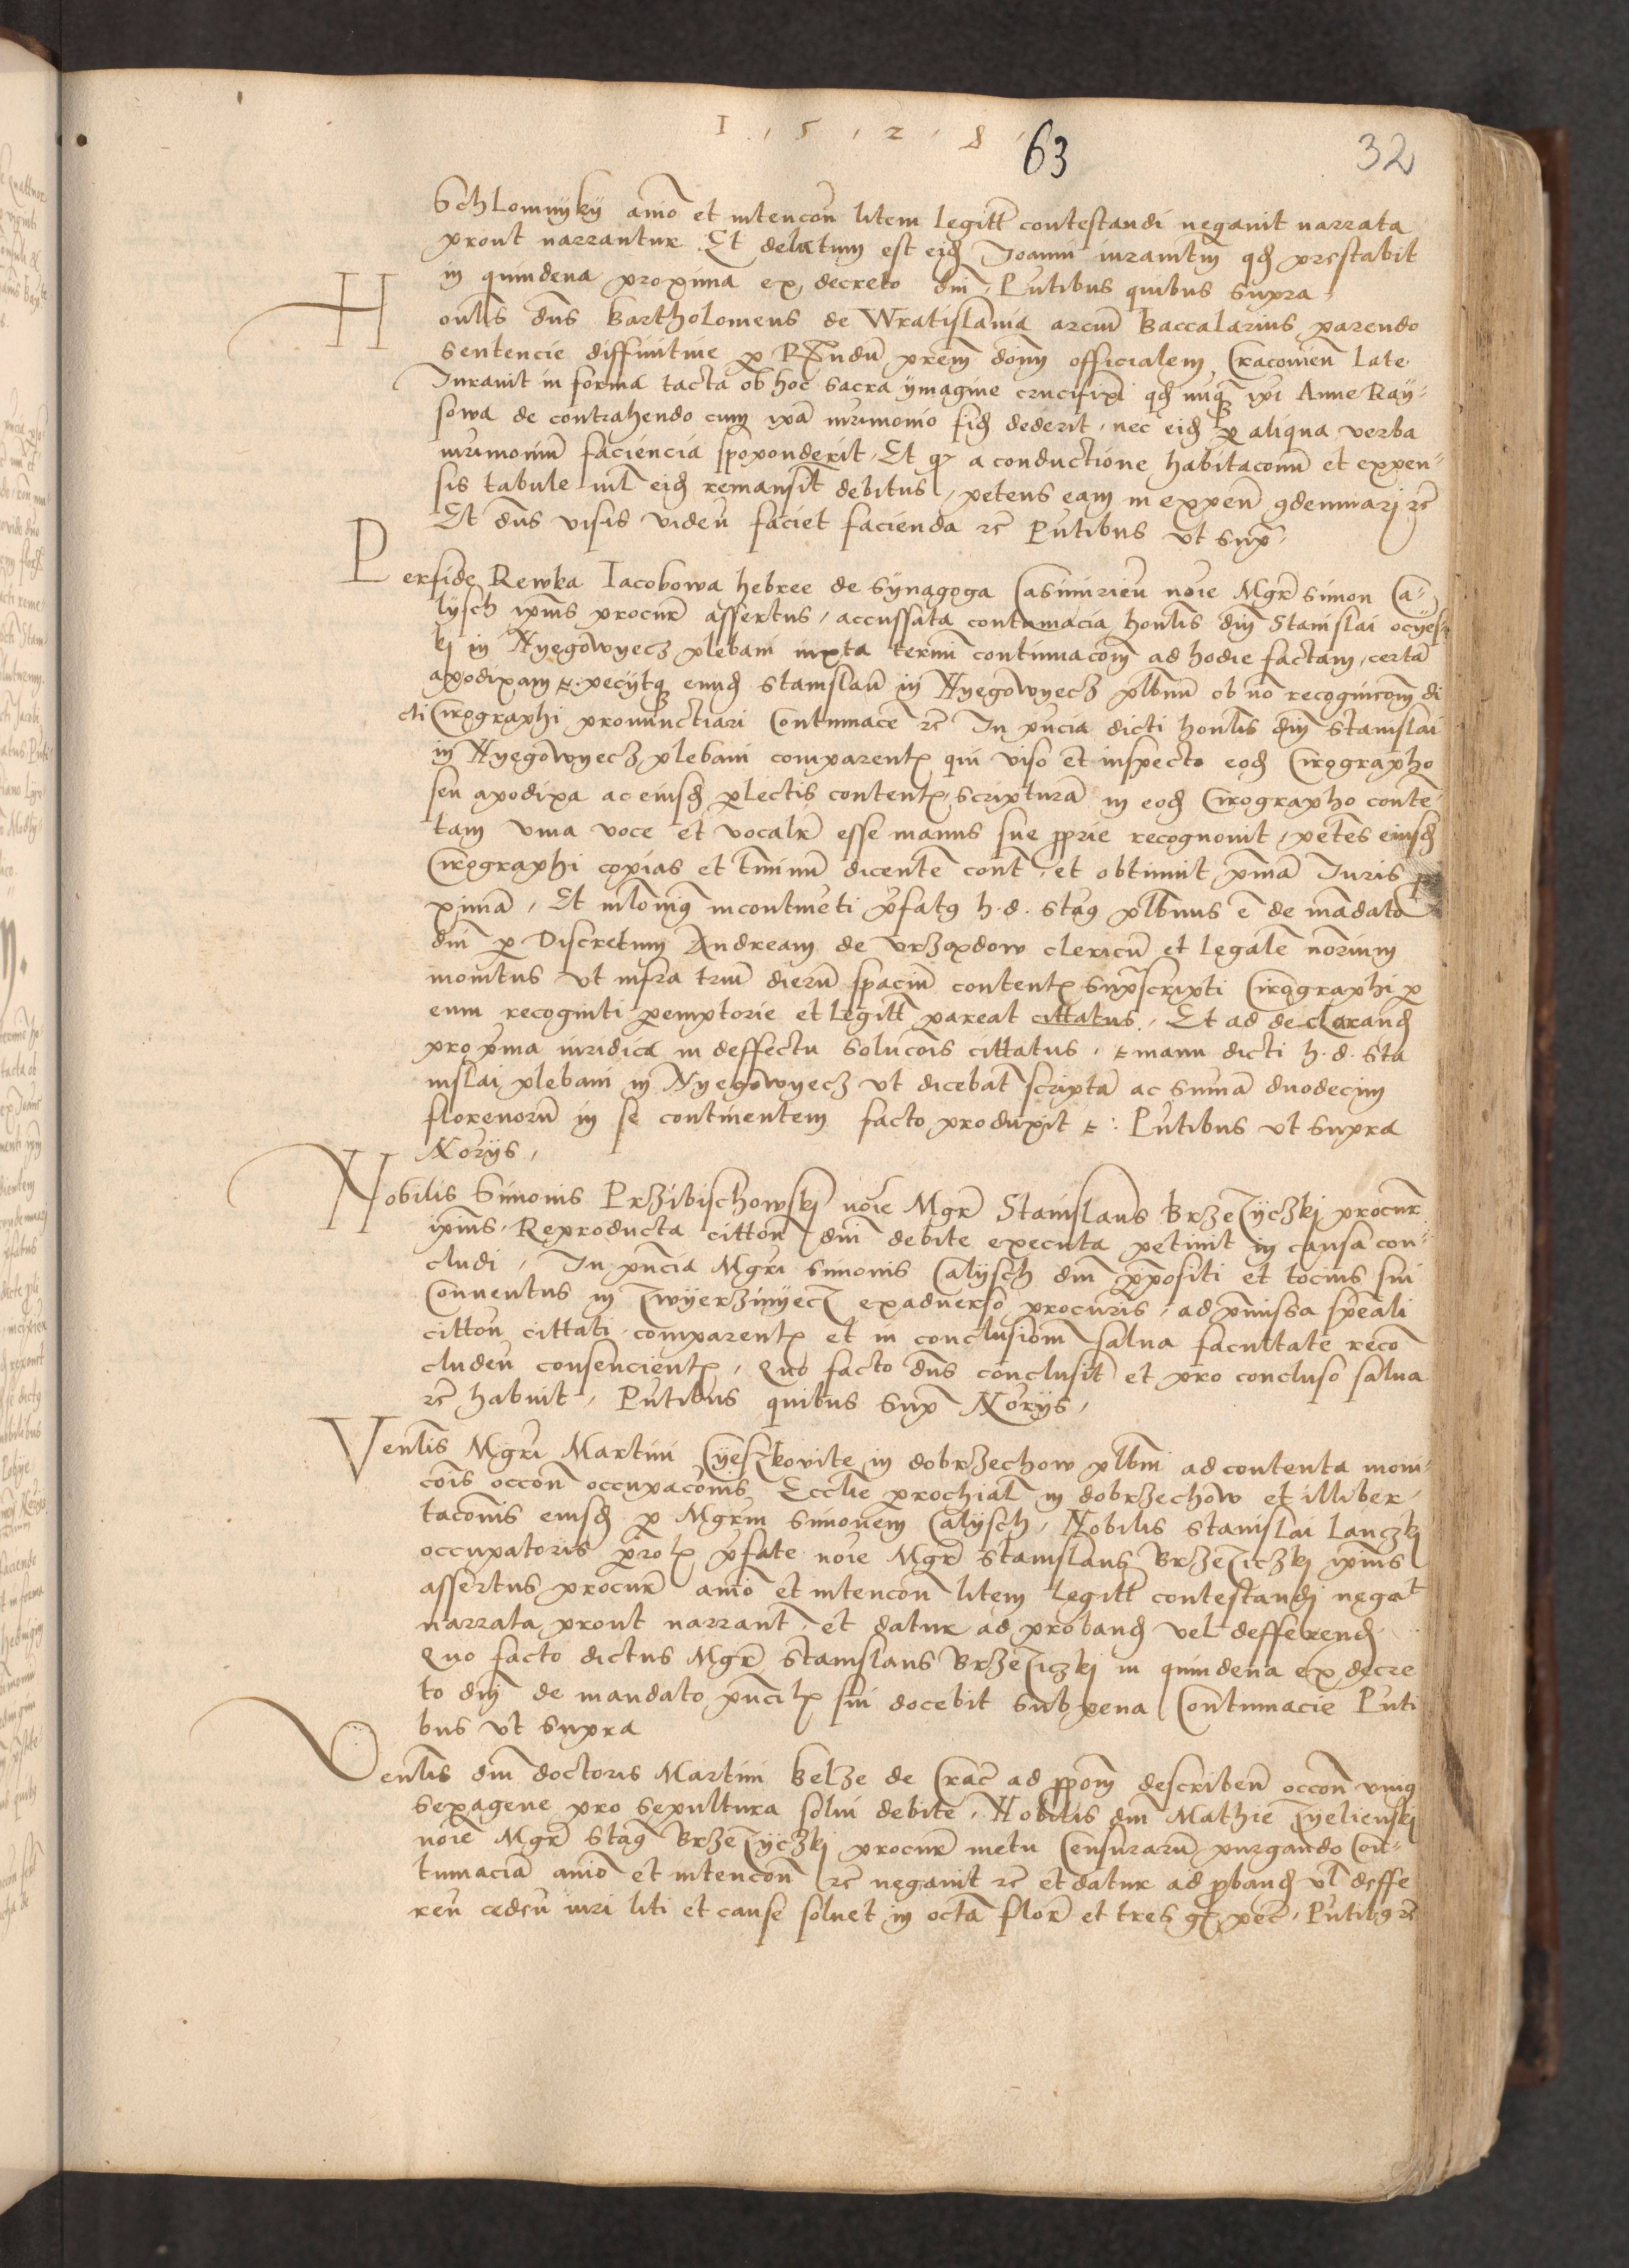 1 5 2 8
63
32
Schlomnyky animo et intencon litem legitt contestandi negavit narrata
prout narrantur Et delatum est eid Joanni iuramtm qd prestabit
in quindena proxima ex decreto dni Pntibus quibus supra
Honlis dns Bartholomeus de Wratislavia arcium baccalarius parendo
sentencie diffinitive p Rndum prem donm officialem Cracovien late
Juravit in forma tacta ob hoc sacra ymagine crucifixi qd nuq ipi Anne Kay
sowa de contrahendo cum ipa mrimonio fid dederit nec eid p aliqua verba
mrimonium faciencia spoponderit Et q a conductione habitaconum et expen
sis tabule nil eid remansit debitus petens eam in expen condemnari rc
Et dns visis viden faciet facienda rc Pntibus vt supra
Perfide Rewka Jacobowa hebree de Synagoga Casimirien noie Mgr Simon Ca
lysch ipius procur assertus accussata contumacia honlis dni Stanislai ocyes
kj in Nyegowyecz plebani iuxta termi continuacom ad hodie factam certa
apodixam petiitq eund Stanislau in Nyegowyecz plbnu ob no recognicom di
cti Cirographi pronunctiari Contumace rc In pncia dicti honlis dni Stanislai
in Nyegowyecz plebani comparent qui viso et inspecto eod Cirographo
seu apodixa ac eiusd plectis content scriptura in eod Cirographo conte
tam viva voce et vocalr esse manus sue pprie recognovit petes eiusd
Cirographi copias et tminum dicente cont et obtinuit pma Juris
pximā Et nlomiq incontineti pfatq h d Staq plbnus e de mandato
dni p Discretum Andream de Vrzaxdow clericu et legale norium
monitus vt infra trium dieru spaciu content suprascripti Cirographi p
eum recogniti pemptorie et legitt pareat cittatus Et ad declarand
pro pma iuridica in deffectu solucois cittatus manu dicti h d Sta
nislai plebani in Nyegowyecz vt dicebat scripta ac suma duodecim
florenoru in se continentem facto produxit Pntibus vt supra
Norys
Nobilis Simonis Przibischowskj noie Mgr Stanislaus Brzeziczkj procur
ipius Reproducta citton dni debite executa petivit in causa con
cludi In pncia Mgri Simonis Calysch dni ppositi et tocius sui
Conventus in Zwyerzinyecz exadverso procuris ad pmissa speali
citton cittati comparent et in conclusiom salva facultate reco
cluden consencient Quo facto dns conclusit et pro concluso salva
rc habuit Pntibus quibus supra Norys
Venlis Mgri Martini Cyeszkovite in dobrzechow plbni ad contenta moni
cois occon occupaconis Ecclie parochial in dobrzechow et illiber
taconis eiusd p Mgrm Simonem Calysch Nobilis Stanislai Lanczkj
occupatoris parol pfate noie Mgr Stanislaus Brzeziczkj ipius
assertus procur animo et intencon litem legitt contestandi negat
narrata prout narrant et datur ad proband vel defferend
Quo facto dictus Mgr Stanislaus Brzeziczkj in quindena ex decre
to dni de mandato pncil sui docebit sub pena Contumacie Pnti
bus vt supra
Venlis dni doctoris Martini Belze de Crac ad pposom describen occon vniq
sexagene pro sepultura solui debite Nobilis dni Mathie Zyelienskj
noie Mgr Staq Brzeziczkj procur metu Censuraru purgando Con
tumacia animo et intencon rc negavit rc et datur ad pband vl deffe
ren ceden iuri liti et cause solvet in octa flor et tres g pet Pntibq rc